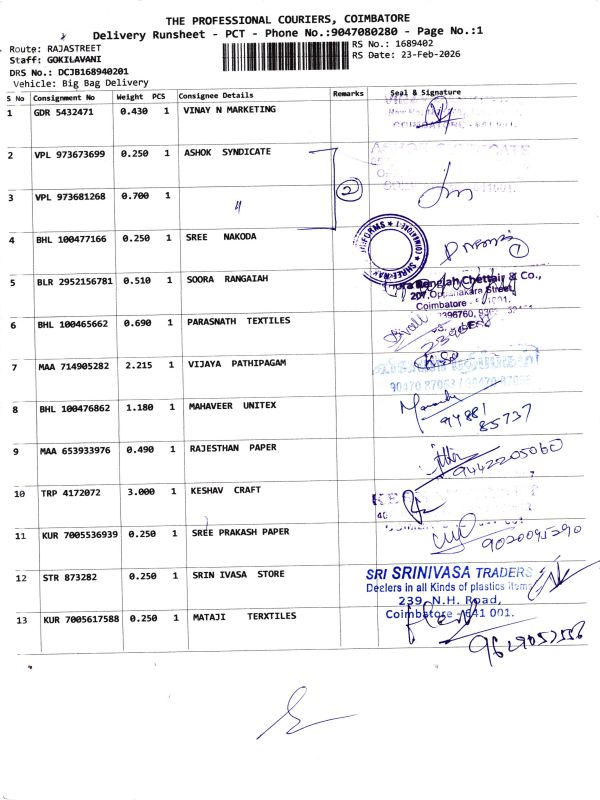 THE PROFESSIONAL COURIERS, COIMBATORE
Delivery Runsheet - PCT - Phone No.:9047080280 - Page No.:1
Route: RAJASTREET
Staff: GOKILAVANI
DRS No.: DCJB168940201
Vehicle: Big Bag Delivery
RS No.: 1689402
RS Date: 23-Feb-2026
S No Consignment No Weight PCS Consignee Details Remarks Seal & Signature
1 GDR 5432471 0.430 1 VINAY N MARKETING
2 VPL 973673699 0.250 1 ASHOK SYNDICATE
3 VPL 973681268 0.700 1 〃 2
4 BHL 100477166 0.250 1 SREE NAKODA
5 BLR 2952156781 0.510 1 SOORA RANGAIAH
Rangiah Chettair & Co.,
207, Oppanakara Street,
Coimbatore
6 BHL 100465662 0.690 1 PARASNATH TEXTILES
7 MAA 714905282 2.215 1 VIJAYA PATHIPAGAM
8 BHL 100476862 1.180 1 MAHAVEER UNITEX
94881
85737
9 MAA 653933976 0.490 1 RAJESTHAN PAPER
9442205060
10 TRP 4172072 3.000 1 KESHAV CRAFT
11 KUR 7005536939 0.250 1 SREE PRAKASH PAPER
9020095290
12 STR 873282 0.250 1 SRIN IVASA STORE
SRI SRINIVASA TRADERS
Dealers in all Kinds of plastics items
239, N.H. Road,
Coimbatore - 641 001.
13 KUR 7005617588 0.250 1 MATAJI TERXTILES